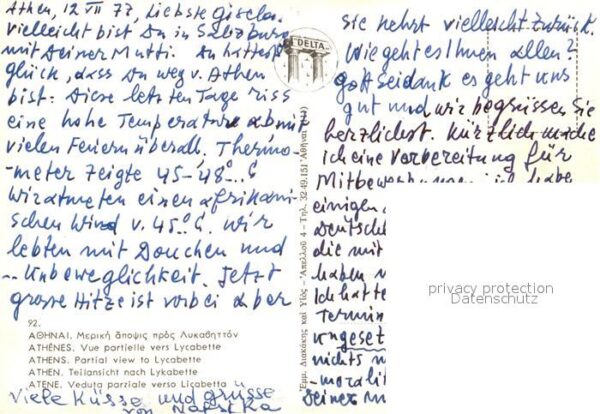 Athen, 12 VII 77, Liebste Gisela.
vielleicht bist Du in Salzburg
mit Deiner Mutti. Du hattest
glück, dass Du weg v. Athen
bist: Diese letzten Tage riss
eine hohe Temperatur ab mit
vielen Feiern überall. Thermo-
meter zeigte 45-48° C
Wir atmeten einen afrikani-
schen Wind v. 45° C. Wir
lebten mit Douchen und
Unbeweglichkeit. Jetzt
grosse Hitze ist vorbei aber
92.
ΑΘΗΝΑΙ. Μερική ἄποψις πρὸς Λυκαβηττόν
ATHÈNES. Vue partielle vers Lycabette
ATHENS. Partial view to Lycabette
ATHEN. Teilansicht nach Lykabette
ATENE. Veduta parziale verso Licabetta
viele Küsse und grüsse
von
DELTA
Ἐμμ. Διακάκης καὶ Υἱὸς - Ἀπελλοῦ 4 - Τηλ. 32.49.151 Ἀθῆναι (111)
sie kehrt vielleicht zurück.
Wie geht es Ihnen allen?
gott seidank es geht uns
gut und wir begrüssen Sie
herzlichst. Kürzlich mache
ich eine Vorbereitung für
einigen
die mit
haben
Ich hatte
Termin
ungeset
nichts
moralit
Deiner
privacy protection
Datenschutz